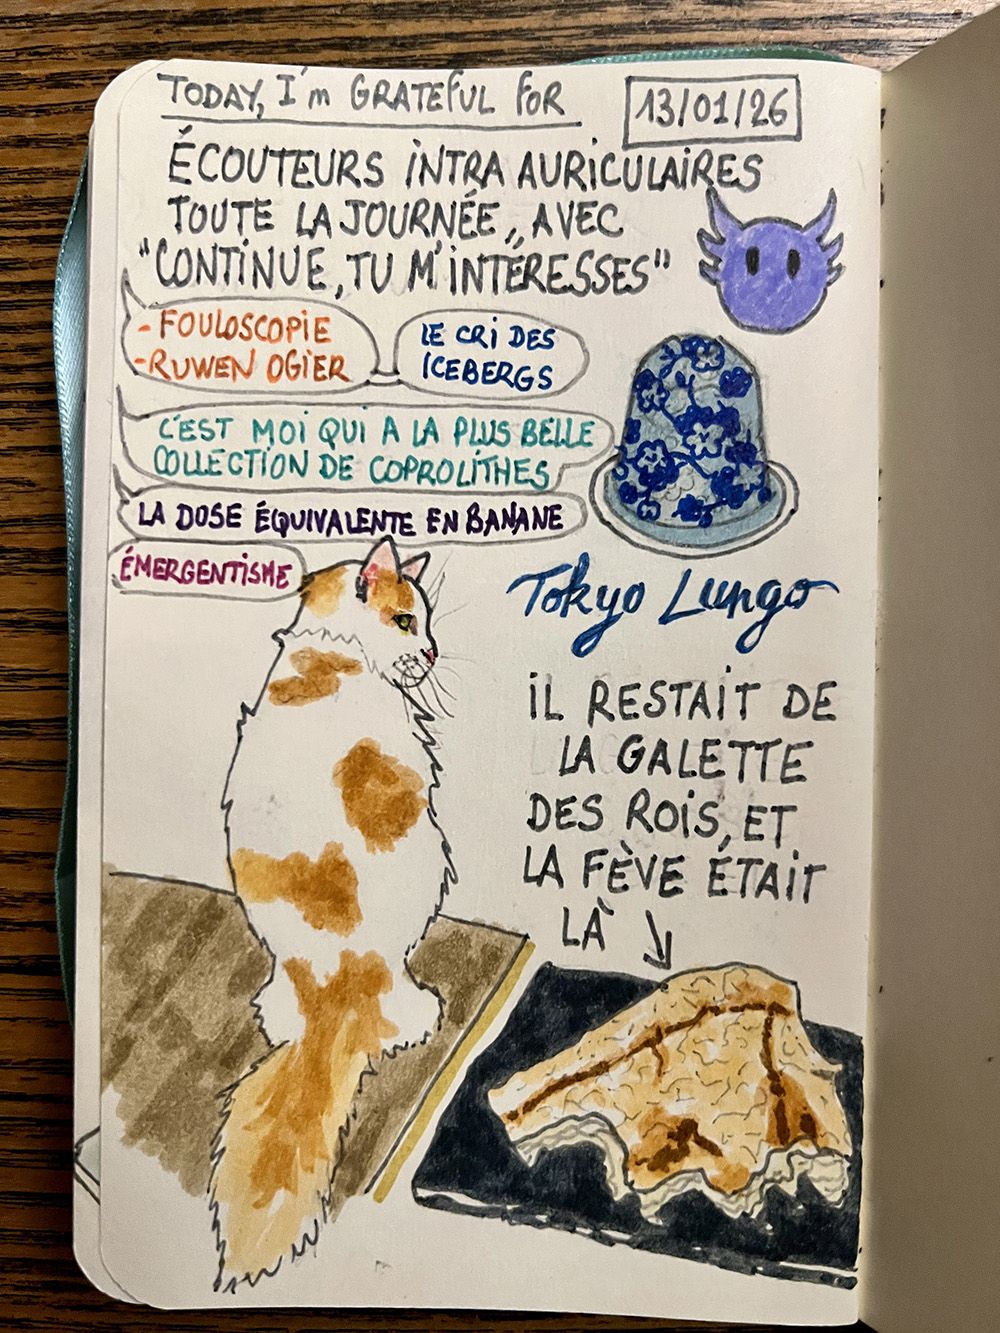 TODAY, I'm GRATEFUL FOR
13/01/26
ÉCOUTEURS INTRA AURICULAIRES
TOUTE LA JOURNÉE, AVEC
"CONTINUE, TU M'INTÉRESSES"
- FOULOSCOPIE
- RUWEN OGIER
LE CRI DES
ICEBERGS
C'EST MOI QUI A LA PLUS BELLE
COLLECTION DE COPROLITHES
LA DOSE ÉQUIVALENTE EN BANANE
ÉMERGENTISME
Tokyo Lungo
IL RESTAIT DE
LA GALETTE
DES ROIS, ET
LA FÈVE ÉTAIT
LÀ